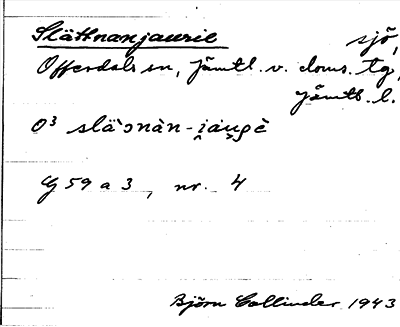 Slättnanjaurie sjö,
Offerdals sn, Jämtl. v. doms. tg,
Jämtl. l.
O³ slä̀ɔnàn-i̯au̯rè
G 59 a 3, nr. 4
Björn Collinder 1943